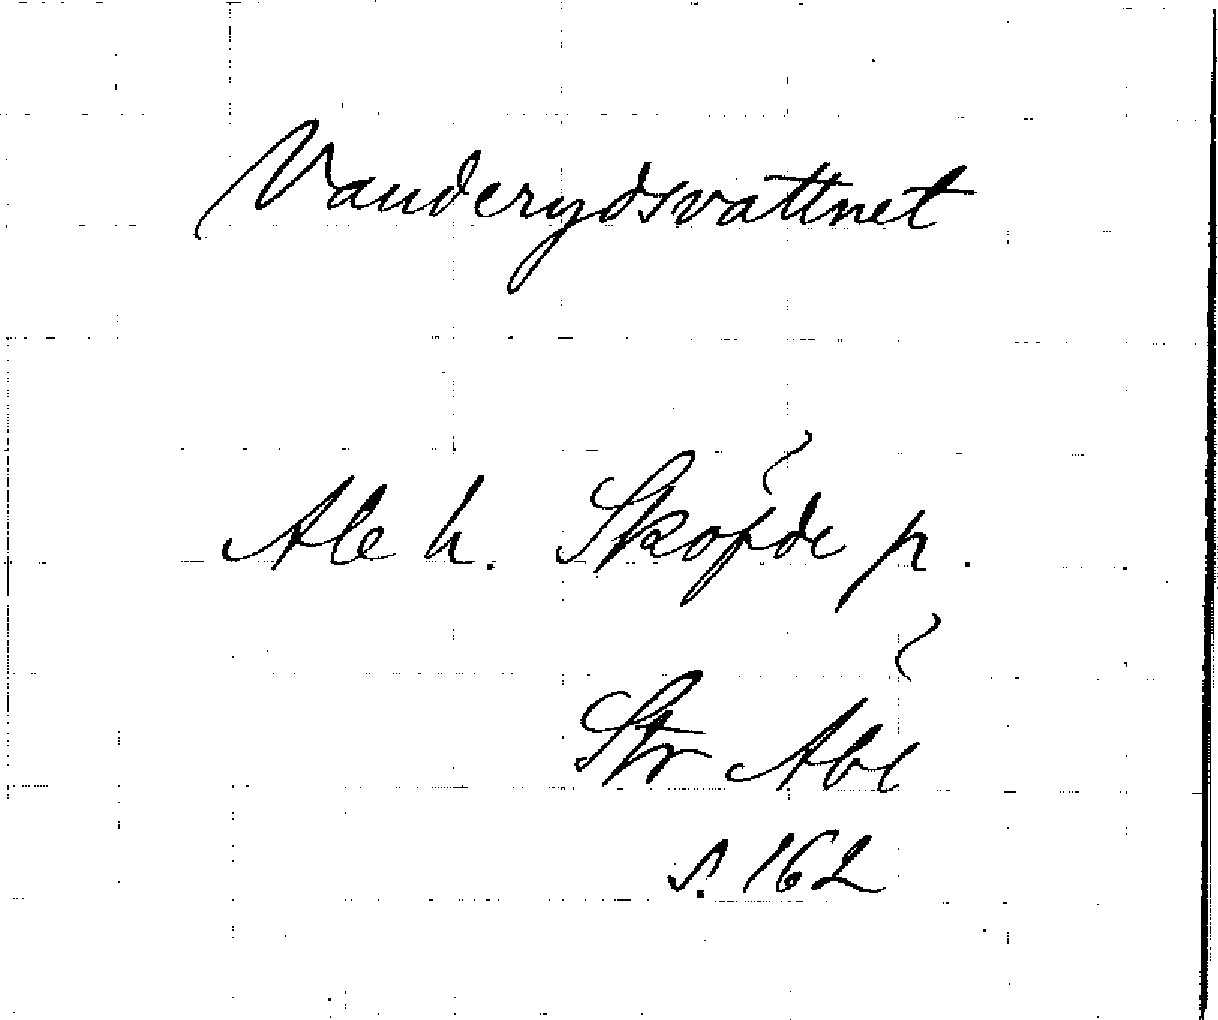 Vanderydsvattnet
Ale h. Sköfde p.
Str
s. 162